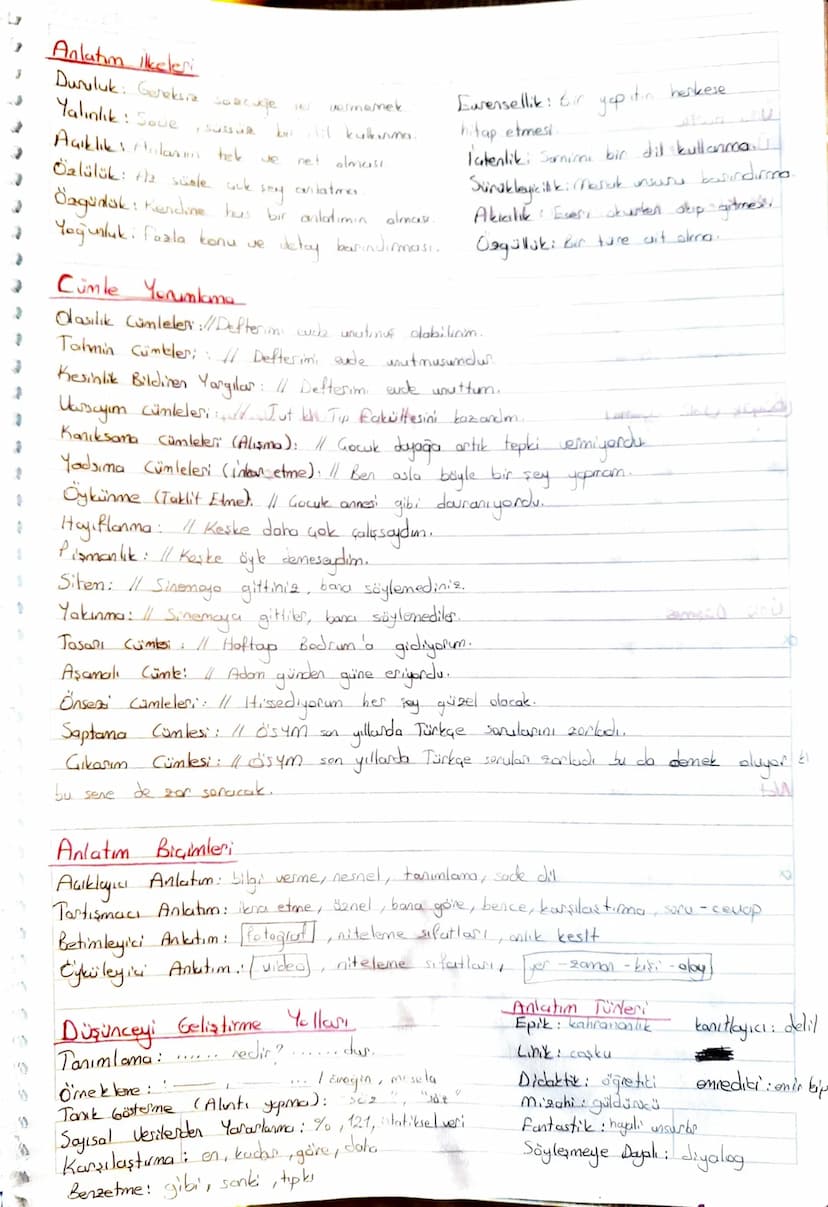 Anlatım İlkeleri
Duruluk: Gereksiz sözcüğe yer vermemek
Yalınlık: Sade, süssüz bir dil kullanma.
Açıklık: Anlamın tek ve net olması
Özlülük: Az sözle çok şey anlatma
Özgünlük: Kendine has bir anlatımın olması
Yoğunluk: Fazla konu ve detay barındırması.
Evrensellik: Bir yapıtın herkese
hitap etmesi
İçtenlik: Samimi bir dil kullanma
Sürükleyicilik: Merak unsuru barındırma.
Akıcılık: Eseri okurken akıp gitmesi
Özgüllük: Bir türe ait olma.
Cümle Yorumlama
Olasılık Cümleleri: // Defterimi evde unutmuş olabilirim.
Tahmin Cümleleri: // Defterimi evde unutmuşumdur
Kesinlik Bildiren Yargılar: // Defterimi evde unuttum.
Varsayım Cümleleri: // Tut ki Tıp Fakültesini kazandım.
Kanıksama Cümleleri (Alışma): // Çocuk dayağa artık tepki vermiyordu
Yadsıma Cümleleri (İnkar etme): // Ben asla böyle bir şey yapmam.
Öykünme (Taklit Etme): // Çocuk annesi gibi davranıyordu.
Hayıflanma: // Keşke daha çok çalışsaydım.
Pişmanlık: // Keşke öyle demeseydim.
Sitem: // Sinemaya gittiniz, bana söylemediniz.
Yakınma: // Sinemaya gittiler, bana söylemediler.
Tasarı Cümlesi: // Haftaya Bodrum'a gidiyorum.
Aşamalı Cümle: // Adam günden güne eriyordu.
Önsezi Cümleleri: // Hissediyorum her şey güzel olacak.
Saptama Cümlesi: // ÖSYM son yıllarda Türkçe sorularını zorladı.
Çıkarım Cümlesi: // ÖSYM son yıllarda Türkçe soruları zorladı bu da demek oluyor ki
bu sene de zor soracak.
Anlatım Biçimleri
Açıklayıcı Anlatım: bilgi verme, nesnel, tanımlama, sade dil
Tartışmacı Anlatım: ikna etme, öznel, bana göre, bence, karşılaştırma, soru-cevap
Betimleyici Anlatım: fotoğraf, niteleme sıfatları, anlık kesit
Öyküleyici Anlatım: video, niteleme sıfatları, yer-zaman-kişi-olay
Düşünceyi Geliştirme Yolları
Tanımlama: ...... nedir? ...... dır.
Örnekleme: ... / örneğin, mesela
Tanık Gösterme (Alıntı yapma): "söz", "söz"
Sayısal Verilerden Yararlanma: %, 121, istatiksel veri
Karşılaştırma: en, kadar, göre, daha
Benzetme: gibi, sanki, tıpkı
Anlatım Türleri
Epik: kahramanlık
Lirik: coşku
Didaktik: öğretici
Mizahi: güldürücü
Fantastik: hayali unsurlar
Söyleşmeye Dayalı: diyalog
kanıtlayıcı: delil
emredici: emir kip